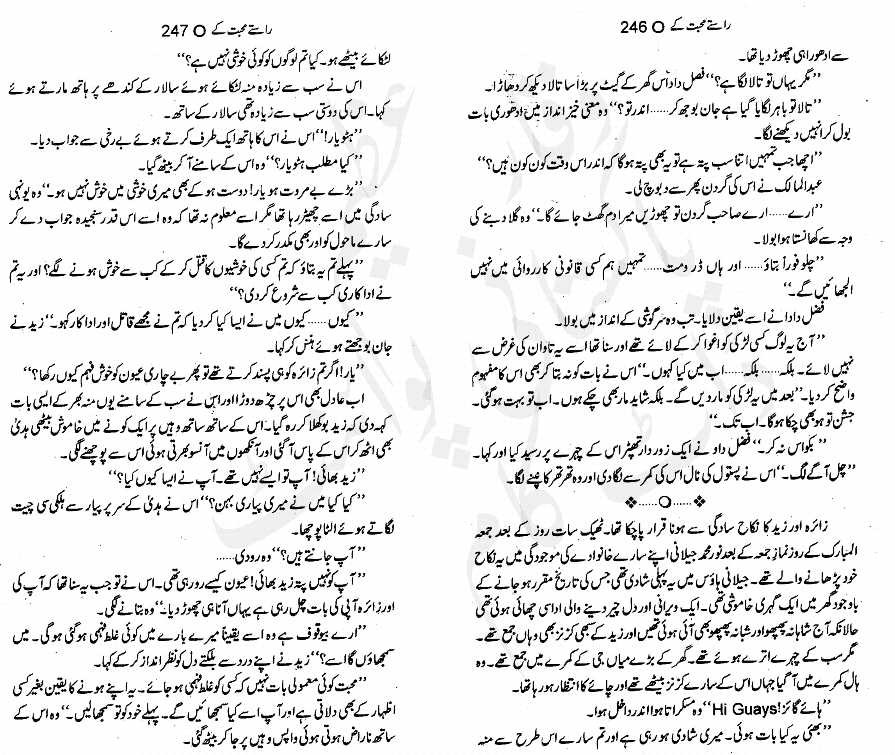 راستے محبت کے O 246
سے ادھورا ہی چھوڑ دیا تھا۔
’’مگر یہاں تو تالا لگا ہے؟‘‘ فضل داد اس گھر کے گیٹ پر بڑا سا تالا دیکھ کر دھاڑا۔
’’تالا تو باہر لگایا گیا ہے جان بوجھ کر...... اندر تو؟‘‘ وہ معنی خیز انداز میں ادھوری بات
بول کر انہیں دیکھنے لگا۔
’’اچھا جب تمہیں اتنا سب پتہ ہے تو یہ بھی پتہ ہوگا کہ اندر اس وقت کون کون ہیں؟‘‘
عبدالمالک نے اس کی گردن پھر سے دبوچ لی۔
’’ارے...... ارے صاحب گردن تو چھوڑیں میرا دم گھٹ جائے گا۔‘‘ وہ گلا دبنے کی
وجہ سے کھانستا ہوا بولا۔
’’چلو فوراً بتاؤ...... اور ہاں ڈرو مت...... تمہیں ہم کسی قانونی کارروائی میں نہیں
الجھائیں گے۔‘‘
فضل داد نے اسے یقین دلایا۔ تب وہ سرگوشی کے انداز میں بولا۔
’’آج یہ لوگ کسی لڑکی کو اغوا کر کے لائے تھے اور سنا تھا اسے یہ تاوان کی غرض سے
نہیں لائے۔ بلکہ...... بلکہ...... اب میں کیا کہوں۔‘‘ اس نے بات کو نہ بتا کر بھی اس کا مفہوم
واضح کر دیا۔ ’’بعد میں یہ لڑکی کو مار دیں گے۔ بلکہ شاید مار بھی چکے ہوں۔ اب تو بہت ہوگئی۔
جشن تو ہو بھی چکا ہوگا۔ اب تک۔‘‘
’’بکواس نہ کر۔‘‘ فضل داد نے ایک زور دار تھپڑ اس کے چہرے پر رسید کیا اور کہا۔
’’چل آگے لگ۔‘‘ اس نے پستول کی نال اس کی کمر سے لگا دی اور وہ تھر تھر کانپنے لگا۔
❖......O......❖
زائرہ اور زید کا نکاح سادگی سے ہونا قرار پا چکا تھا۔ ٹھیک سات روز کے بعد جمعہ
المبارک کے روز نماز جمعہ کے بعد نور محمد جیلانی اپنے سارے خانوادے کی موجودگی میں یہ نکاح
خود پڑھانے والے تھے۔ جیلانی ہاؤس میں یہ پہلی شادی تھی جس کی تاریخ مقرر ہو جانے کے
باوجود گھر میں ایک گہری خاموشی تھی۔ ایک ویرانی اور دل چیر دینے والی اداسی چھائی ہوئی تھی
حالانکہ آج شاہانہ پھپھو اور شبانہ پھپھو بھی آئی ہوئی تھیں اور زید کے سبھی کزنز بھی وہاں جمع تھے۔
مگر سب کے چہرے اترے ہوئے تھے۔ گھر کے بڑے میاں جی کے کمرے میں جمع تھے۔ وہ
ہال کمرے میں آ گیا جہاں اس کے سارے کزنز بیٹھے تھے اور چائے کا انتظار ہو رہا تھا۔
’’ہائے گائز! Hi Guays‘‘ وہ مسکراتا ہوا اندر داخل ہوا۔
’’بھئی یہ کیا بات ہوئی۔ میری شادی ہو رہی ہے اور تم سارے اس طرح سے منہ
راستے محبت کے O 247
لٹکائے بیٹھے ہو۔ کیا تم لوگوں کو کوئی خوشی نہیں ہے؟‘‘
اس نے سب سے زیادہ منہ لٹکائے ہوئے سالار کے کندھے پر ہاتھ مارتے ہوئے
کہا۔ اس کی دوستی سب سے زیادہ تھی سالار کے ساتھ۔
’’ہٹو یار!‘‘ اس نے اس کا ہاتھ ایک طرف کرتے ہوئے بے رخی سے جواب دیا۔
’’کیا مطلب ہٹو یار؟‘‘ وہ اس کے سامنے آ کر بیٹھ گیا۔
’’بڑے بے مروت ہو یار! دوست ہو کے بھی میری خوشی میں خوش نہیں ہو۔‘‘ وہ یونہی
سادگی میں اسے چھیڑ رہا تھا مگر اسے معلوم نہ تھا کہ وہ اسے اس قدر سنجیدہ جواب دے کر
سارے ماحول کو اور بھی مکدر کر دے گا۔
’’پہلے تم یہ بتاؤ کہ تم کسی کی خوشیوں کا قتل کر کے کب سے خوش ہونے لگے؟ اور یہ تم
نے اداکاری کب سے شروع کر دی؟‘‘
’’کیوں...... کیوں میں نے ایسا کیا کر دیا کہ تم نے مجھے قاتل اور اداکار کہو۔‘‘ زید نے
جان بوجھتے ہوئے ہنس کر کہا۔
’’یار! اگر تم زائرہ کو ہی پسند کرتے تھے تو پھر بے چاری عیون کو خوش فہم کیوں رکھا؟‘‘
اب عادل بھی اس پر چڑھ دوڑا اور اس نے سب کے سامنے یوں منہ بھر کے ایسی بات
کہہ دی کہ زید بوکھلا کر رہ گیا۔ اس کے ساتھ ساتھ وہیں پر ایک کونے میں خاموش بیٹھی ہدیٰ
بھی اٹھ کر اس کے پاس آ گئی اور آنکھوں میں آنسو بھرتی ہوئی اس سے پوچھنے لگی۔
’’زید بھائی! آپ تو ایسے نہیں تھے۔ آپ نے ایسا کیوں کیا؟‘‘
’’کیا کیا میں نے میری پیاری بہن؟‘‘ اس نے ہدیٰ کے سر پر پیار سے ہلکی سی چپت
لگاتے ہوئے الٹا پوچھا۔
’’آپ جانتے ہیں؟‘‘ وہ رو دی......
’’آپ کو نہیں پتہ زید بھائی! عیون کیسے رو رہی تھی۔ اس نے تو جب یہ سنا تھا کہ آپ کی
اور زائرہ آپی کی بات چل رہی ہے یہاں آنا ہی چھوڑ دیا۔‘‘ وہ بتانے لگی۔
’’ارے بیوقوف ہے وہ اسے یقیناً میرے بارے میں کوئی غلط فہمی ہو گئی ہو گی۔ میں
سمجھاؤں گا اسے؟‘‘ زید نے اپنے درد سے بلکتے دل کو نظر انداز کر کے کہا۔
’’محبت کوئی معمولی بات نہیں کہ کسی کو غلط فہمی ہو جائے۔ یہ اپنے ہونے کا یقین بغیر کسی
اظہار کے بھی دلاتی ہے اور آپ اسے کیا سمجھائیں گے۔ پہلے خود کو تو سمجھا لیں۔‘‘ وہ اس کے
ساتھ ناراض ہوتی ہوئی واپس وہیں پر جا کر بیٹھ گئی۔